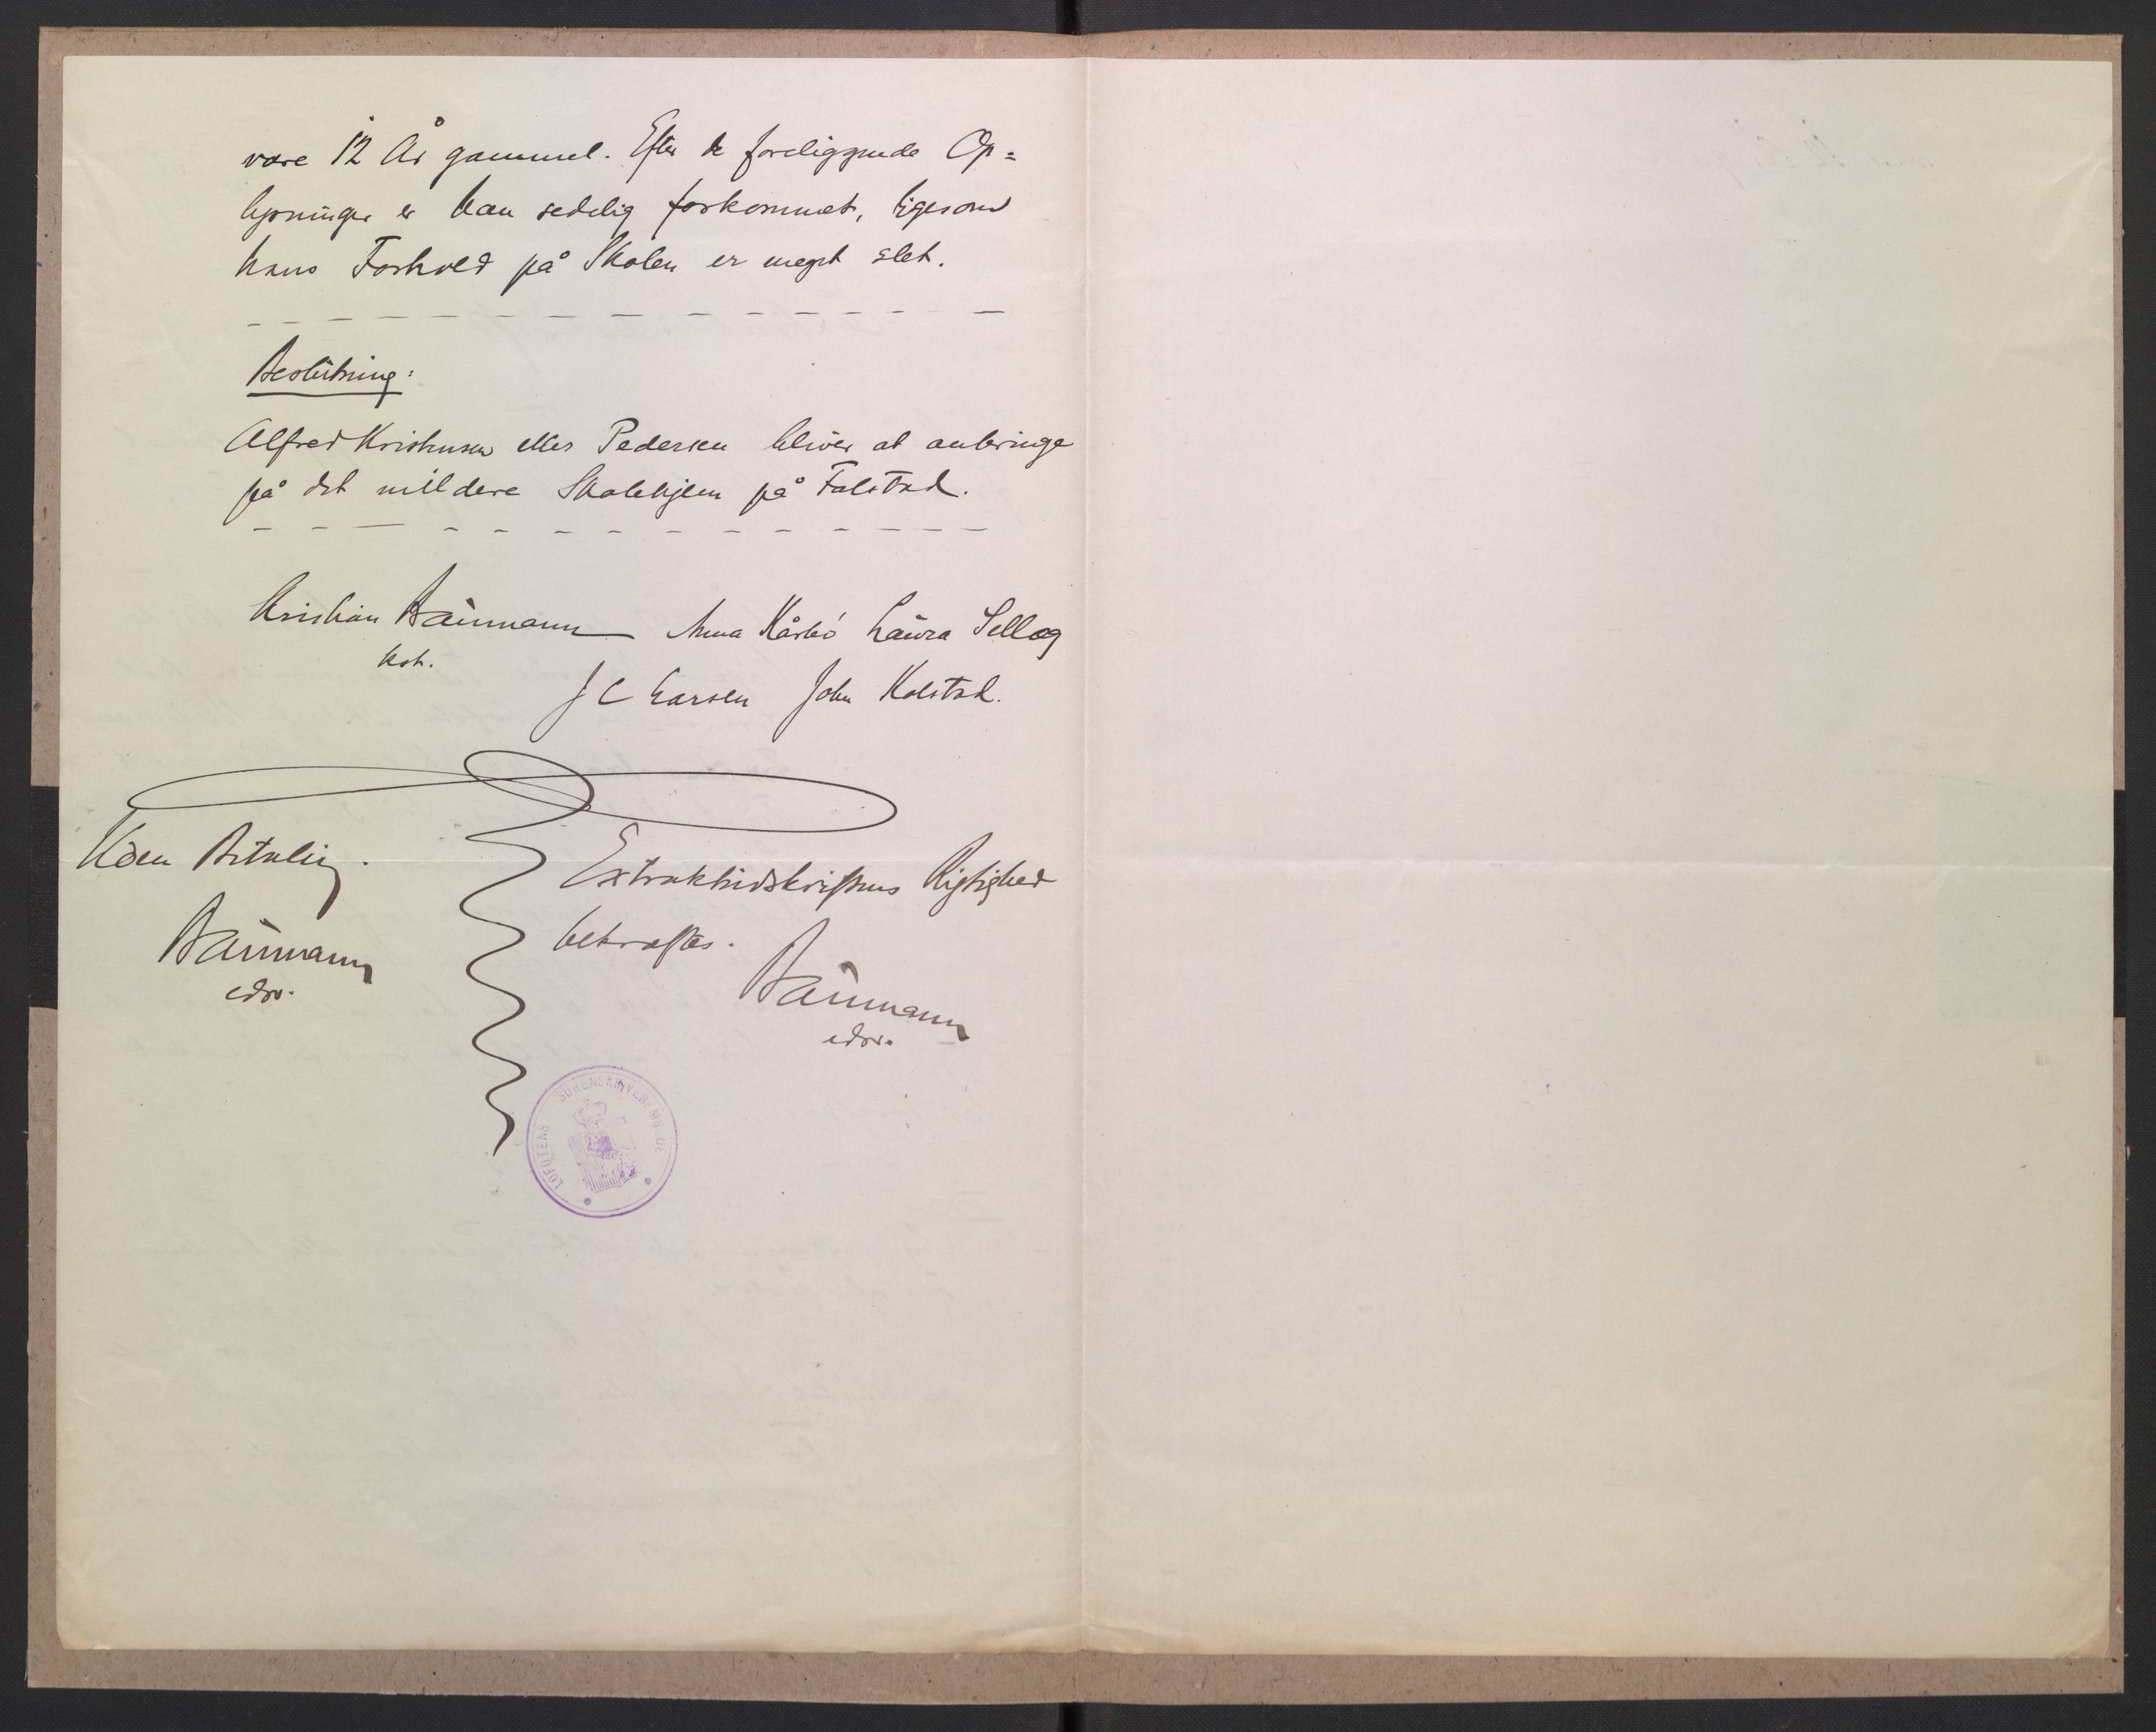 være 12 År gammel. Efter de foreliggende Op=
lysninger er han sedelig forkommet, ligesom
hans Forhold på Skolen er meget slet.
Beslutning:
Alfred Kristensen eller Pedersen bliver at anbringe
på det mildere Skolehjem på Falstad.
Kristian Baumann Anna Kårbö Laura Sellæg
kst.
J C Larsen John Kolstad.
Uden Betaling.
Baumann
edsv.
Extraktudskriftens Rigtighed
bekræftes.
Baumann
edsv.
LOFOTENS SORENSKRIVEREMBEDE